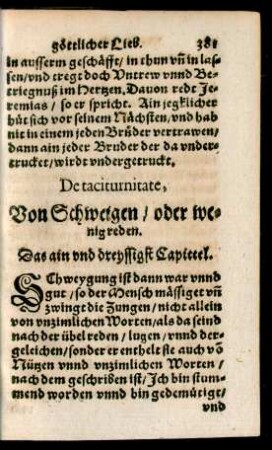 göttlicher Lieb. 381
in ausserm geschäfft/ in thun vñ in las-
sen/ vnd tregt doch Vntrew vnnd Be-
triegnuß im Hertzen. Dauon redt Je-
remias/ so er spricht. Ain jegklicher
hüt sich vor seinem Nächsten/ vnd hab
nit in einem jeden Brüder vertrawen/
dann ain jeder Bruder der da vnder-
trucket/ wirdt vndergetruckt.
De taciturnitate,
Von Schweigen/ oder we-
nig reden.
Das ain vnd dreyssigst Capittel.
SChweygung ist dann war vnnd
gut/ so der Mensch mässiget vñ
zwingt die Zungen/ nicht allein
von vnzimlichen Worten/ als da seind
nach der übel reden/ lugen/ vnnd der-
geleichen/ sonder er enthelt sie auch võ
Nützen vnnd vnzimlichen Worten/
nach dem geschriben ist/ Ich bin stum-
mend worden vnnd bin gedemütigt/
vnd